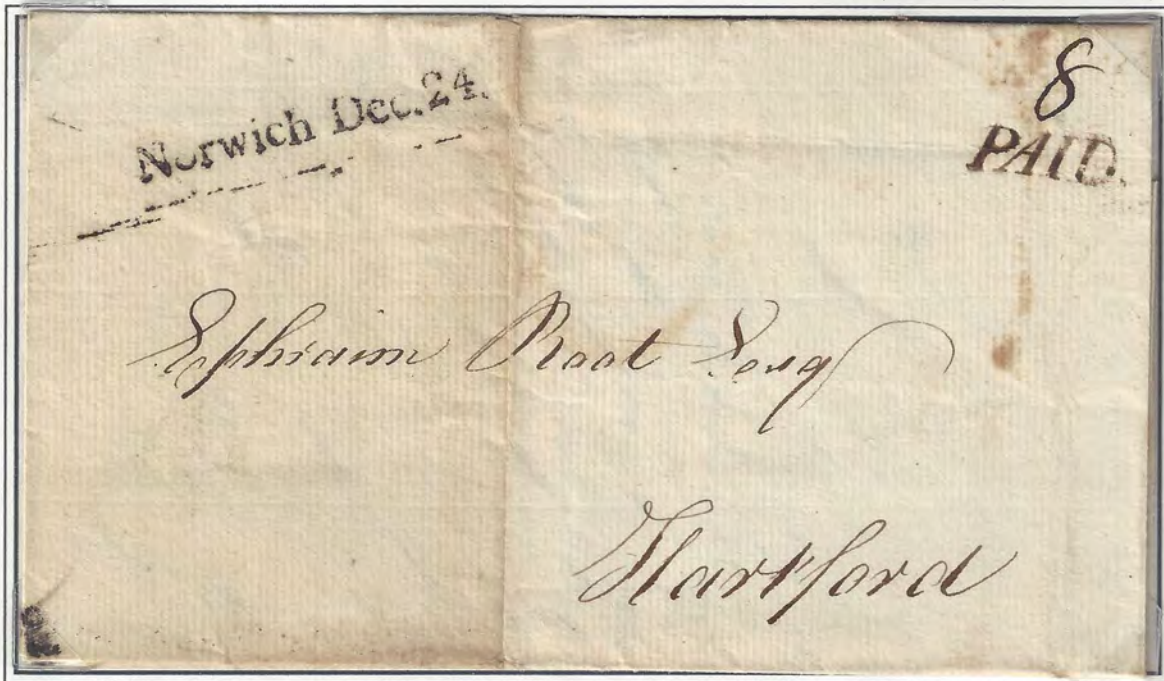 Norwich Dec. 24.
8
PAID.
Ephraim Root Esq
Hartford